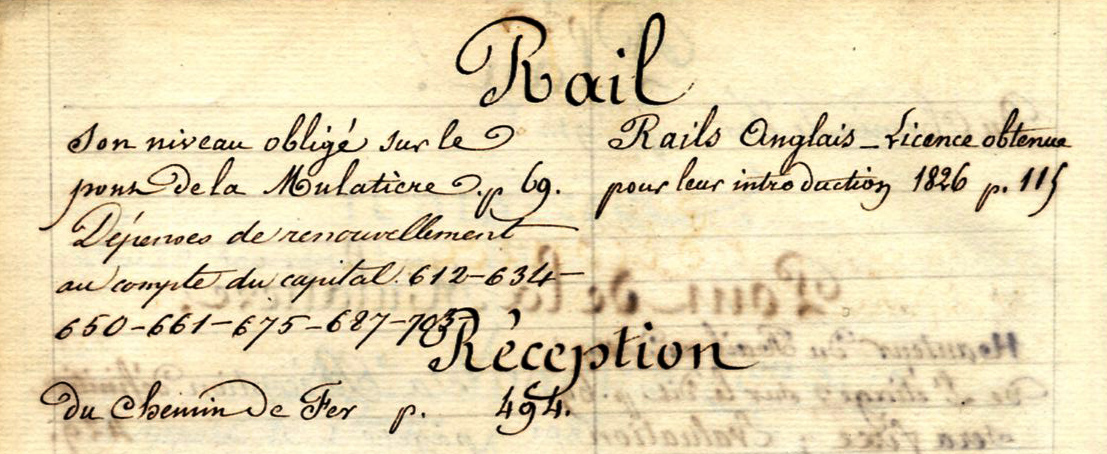 Rail
Son niveau obligé sur le
pont de la Mulatiere. p 69.
Dépenses de renouvellement
au compte du capital. 612-634-
650-661-675-687-703-
Rails Anglais _ Licence obtenue
pour leur introduction 1826 p. 115
Réception
du Chemin de Fer p. 494.